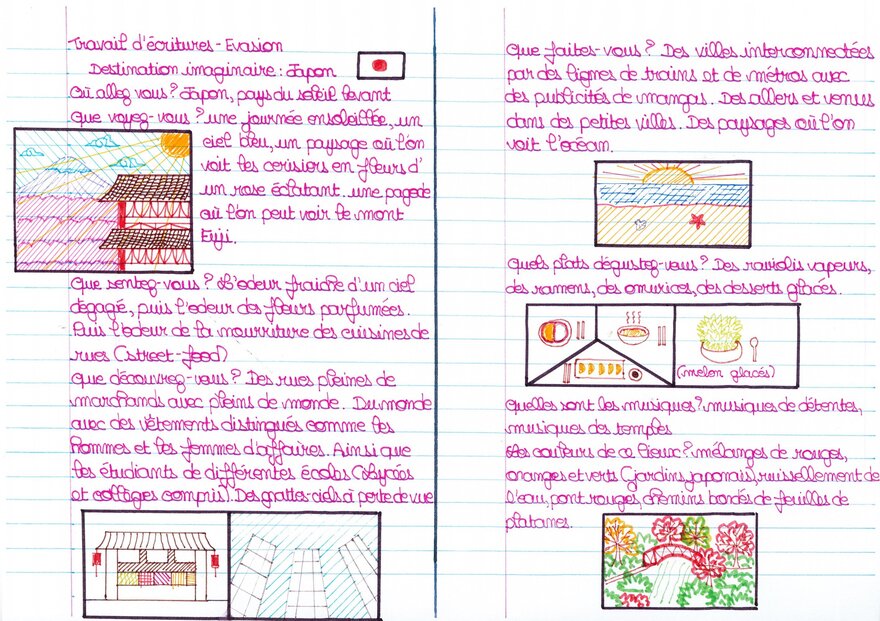 Travail d'écritures - Evasion
Destination imaginaire : Japon
Où allez vous ? Japon, pays du soleil levant
Que voyez-vous ? une journée ensoleillée, un
ciel bleu, un paysage où l'on
voit les cerisiers en fleurs d'
un rose éclatant. une pagode
où l'on peut voir le mont
Fiji.
Que sentez-vous ? L'odeur fraiche d'un ciel
dégagé, puis l'odeur des fleurs parfumées.
Puis l'odeur de la nourriture des cuisines de
rues (street-food)
Que découvrez-vous ? Des rues pleines de
marchands avec pleins de monde. Du monde
avec des vêtements distingués comme les
hommes et les femmes d'affaires. Ainsi que
les étudiants de différentes écoles (lycées
et collèges compris). Des grattes ciels à perte de vue
Que faites-vous ? Des villes interconnectées
par des lignes de trains et de métros avec
des publicités de mangas. Des allers et venus
dans des petites villes. Des paysages où l'on
voit l'océan.
Quels plats dégustez-vous ? Des raviolis vapeurs,
des ramens, des omurices, des desserts glacés.
(melon glacés)
Quelles sont les musiques ? musiques de détentes,
musiques des temples
Les couleurs de ce lieux ? mélanges de rouges,
oranges et verts (jardins japonais, ruissellement de
l'eau, pont rouges, chemins bordés de feuilles de
platanes.